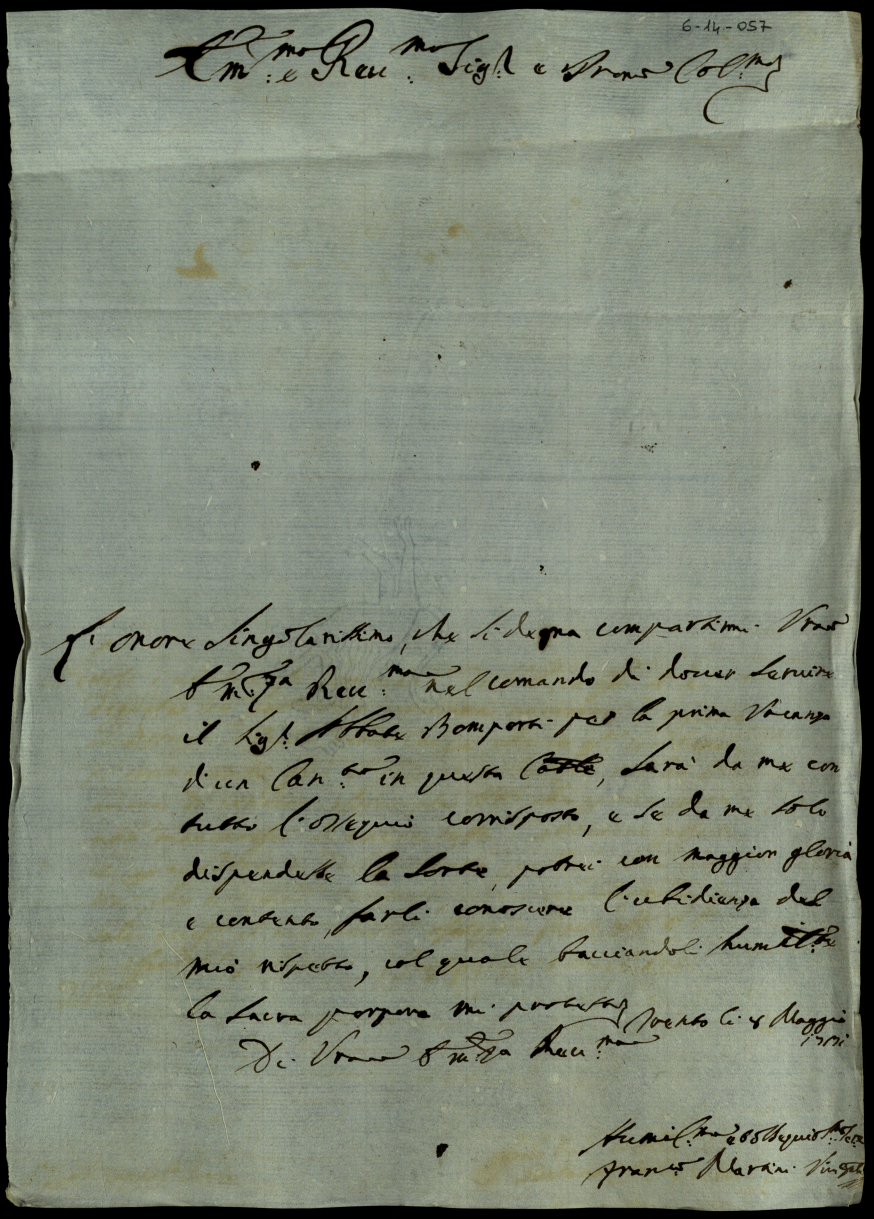 6-14-057
Em:mo e Reu:mo Sig.r e Prone Col:mo
L'onore singolarissimo, che si degna compartirmi Vra
Em:za Reu:ma nel comando di douer seruire
il Sig.r Abbate Bomporti per la prima Vacanza
di un Can:to in questa, sarà da me con
tutto l'ossequio corrisposto, e se da me solo
dispendesse la sorte, potrei con maggior gloria
e contento farli conoscere l'ubidienza del
mio rispetto, col quale bacciandoli humilte
la sacra porpora mi protesto
Di Vra Em:za Reu:ma Trento li 8 Maggio
Humil:mo e obsequios:mo
Fran:co Martini